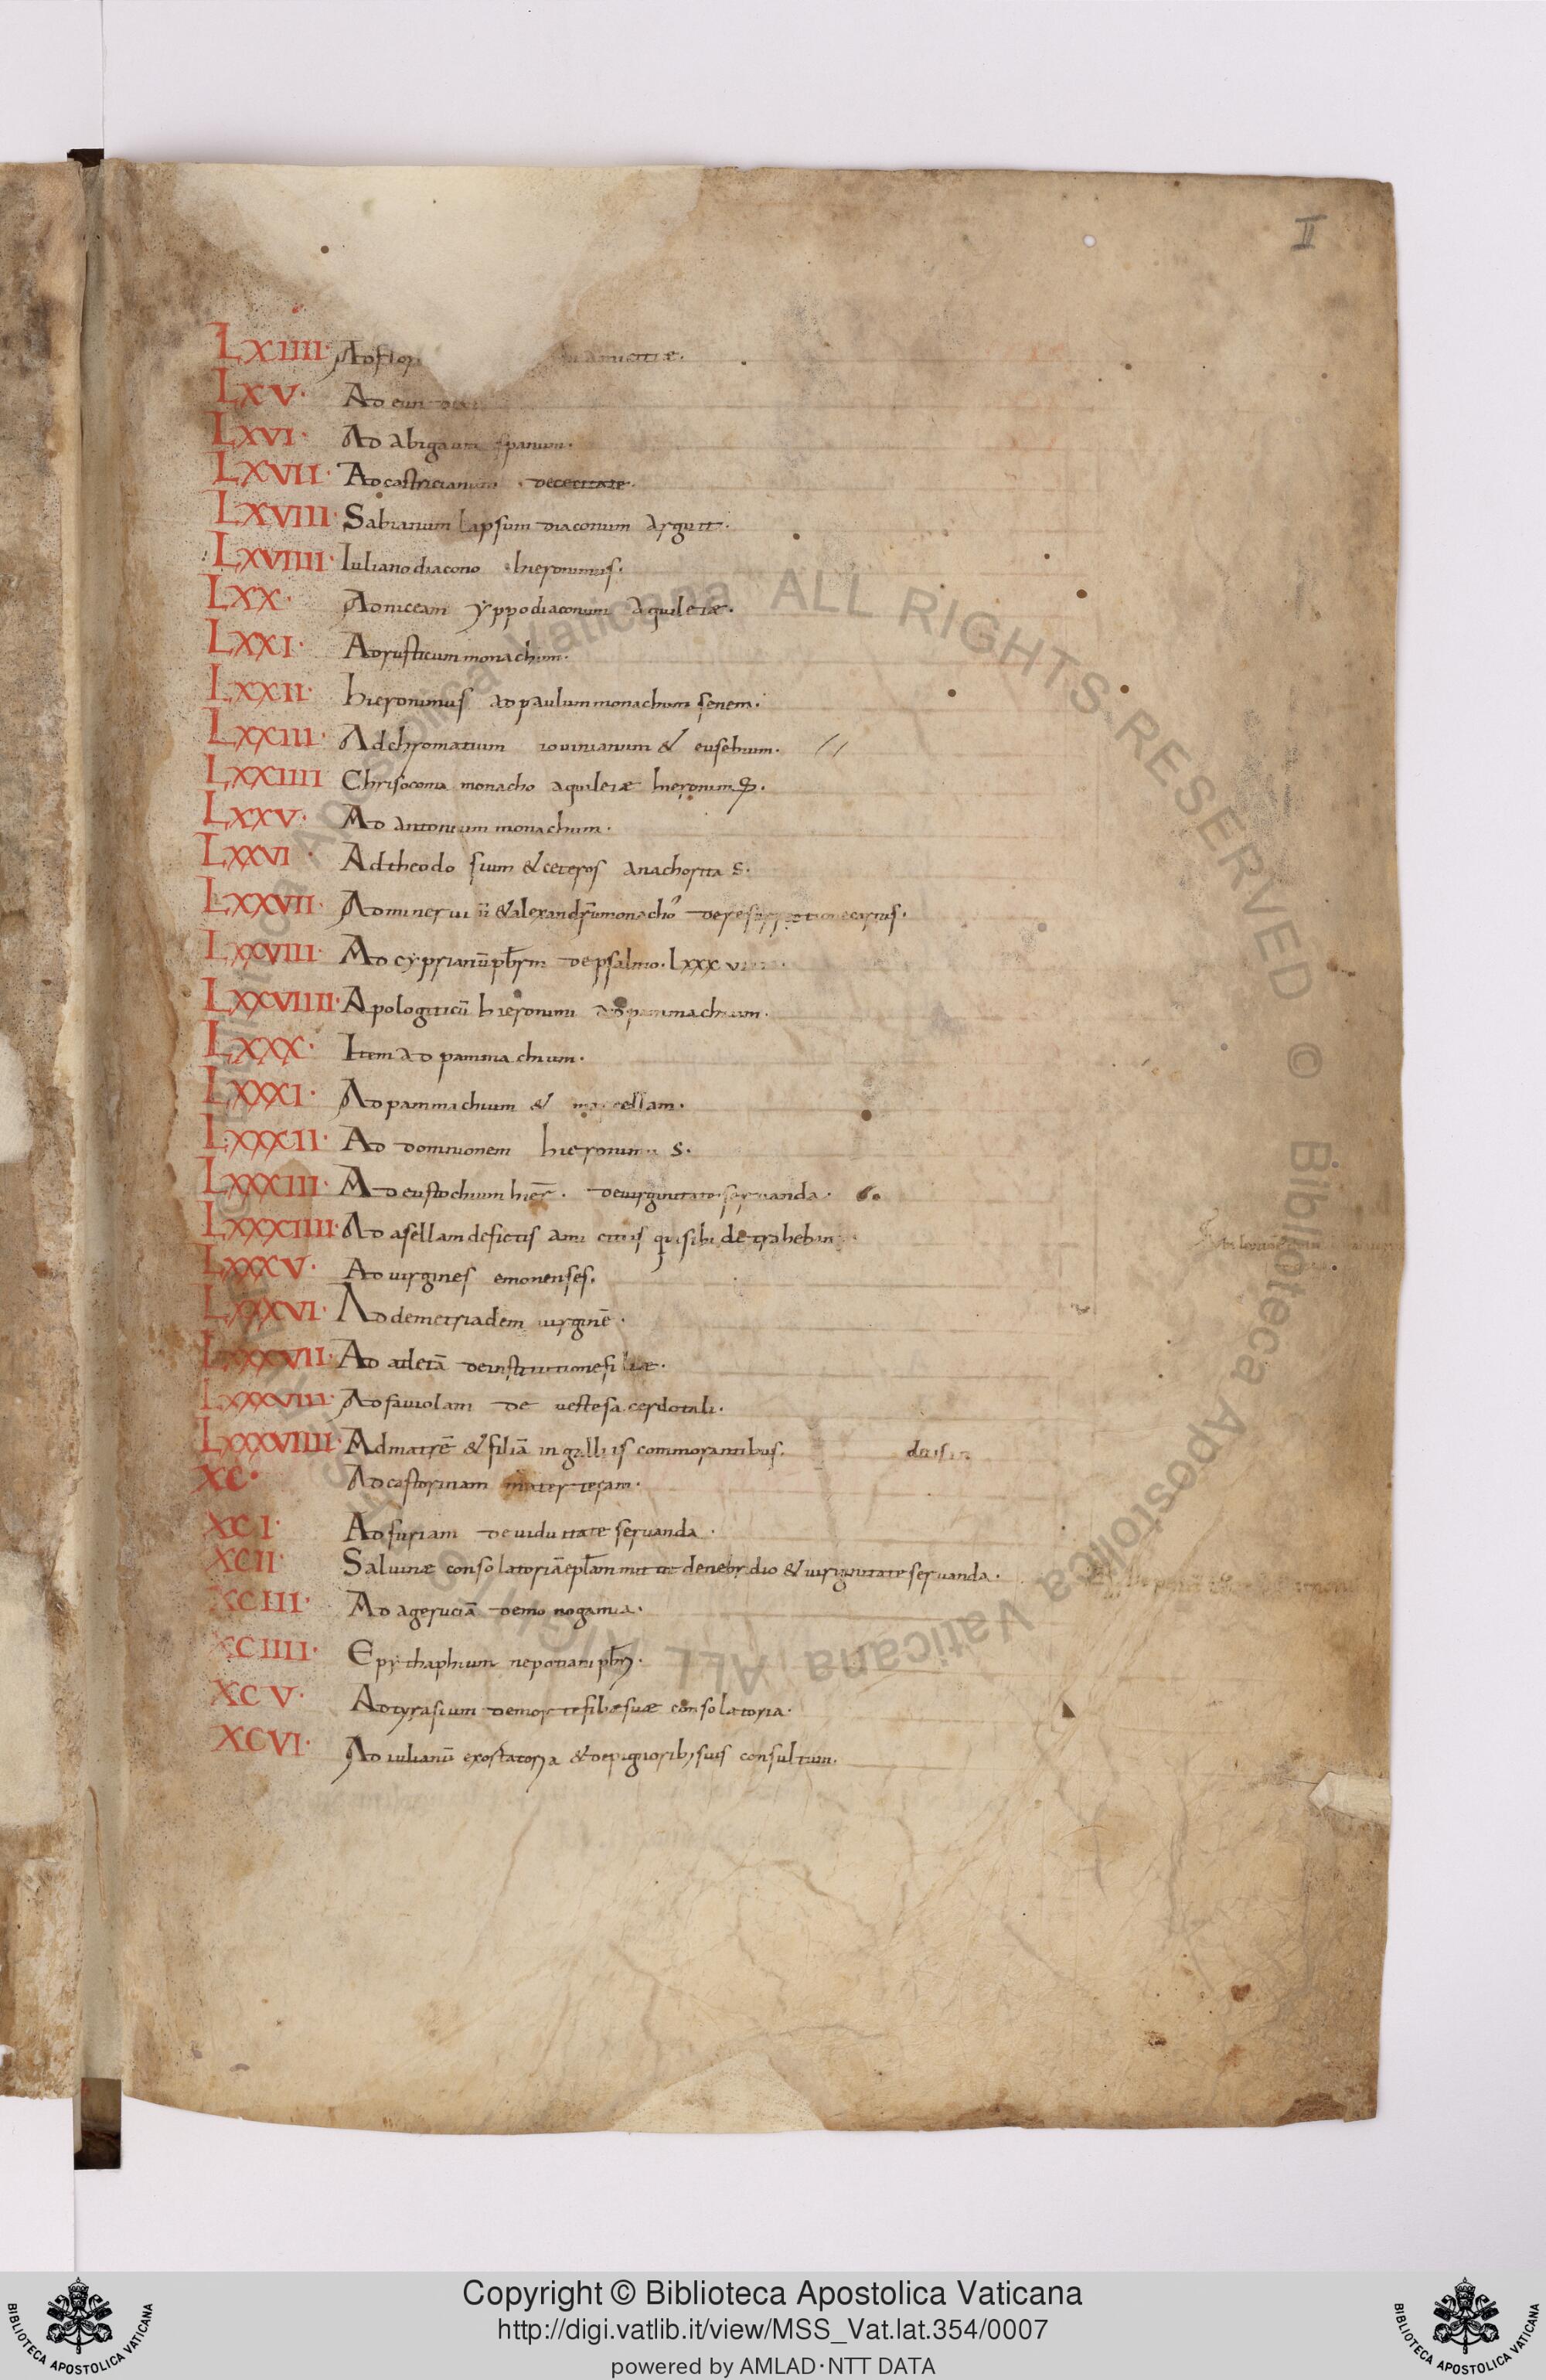 II
LXIIII· Ad flor amicitiæ.
LXV· Ad eun
LXVI· Ad abigaum spanum.
LXVII· Ad castricianum · de cecitate.
LXVIII· Sabianum lapsum diaconum arguit.
LXVIIII· Iuliano diacono hieronimus.
LXX· Ad niceam yppodiaconum aquileiæ.
LXXI· Ad rusticum monachum.
LXXII· hieronimus ad paulum monachum senem.
LXXIII· Ad chromatium iouinianum & eusebium.
LXXIIII Chrisocoma monacho aquileiæ hieronim
LXXV· Ad antonium monachum.
LXXVI· Ad theodosium & ceteros anachoritas.
LXXVII· Ad & alexandrū monachō de resurrectione carnis.
LXXVIII· Ad cyprianū pb̄rm de psalmo. Lxxxv
LXXVIIII· Apologiticū hieronimi ad pammachium.
LXXX· Item ad pammachium.
LXXXI· Ad pammachium & marcellam.
LXXXII· Ad domnionem hieronimus.
LXXXIII· Ad eustochium hier̄. de uirginitate seruanda.
LXXXIIII· Ad asellam de fictis amicitiis qui sibi detrahebant
LXXXV· Ad uirgines emonenses.
LXXXVI· Ad demetriadem uirginē.
LXXXVII· Ad aletā de institutione filiæ.
LXXXVIII· Ad fauiolam de ueste sacerdotali.
LXXXVIIII· Ad matrē & filiā in galliis commorantibus.
XC· Ad castorinam materteram.
XCI· Ad furiam de uiduitate seruanda.
XCII· Saluinæ consolatoriā epl̄am mittit de nebridio & uirginitate seruanda.
XCIII· Ad ageruciā de monogamia.
XCIIII· Epythaphium nepotiani pb̄ri.
XCV· Ad tyrasium de morte filiæ suæ consolatoria.
XCVI· Ad iulianū exortatoria & de pignorib; suis consultum.
Copyright © Biblioteca Apostolica Vaticana
http://digi.vatlib.it/view/MSS_Vat.lat.354/0007
powered by AMLAD·NTT DATA
BIBLIOTECA APOSTOLICA VATICANA
BIBLIOTECA APOSTOLICA VATICANA
Biblioteca Apostolica Vaticana ALL RIGHTS RESERVED © Biblioteca Apostolica Vaticana ALL RIGHTS